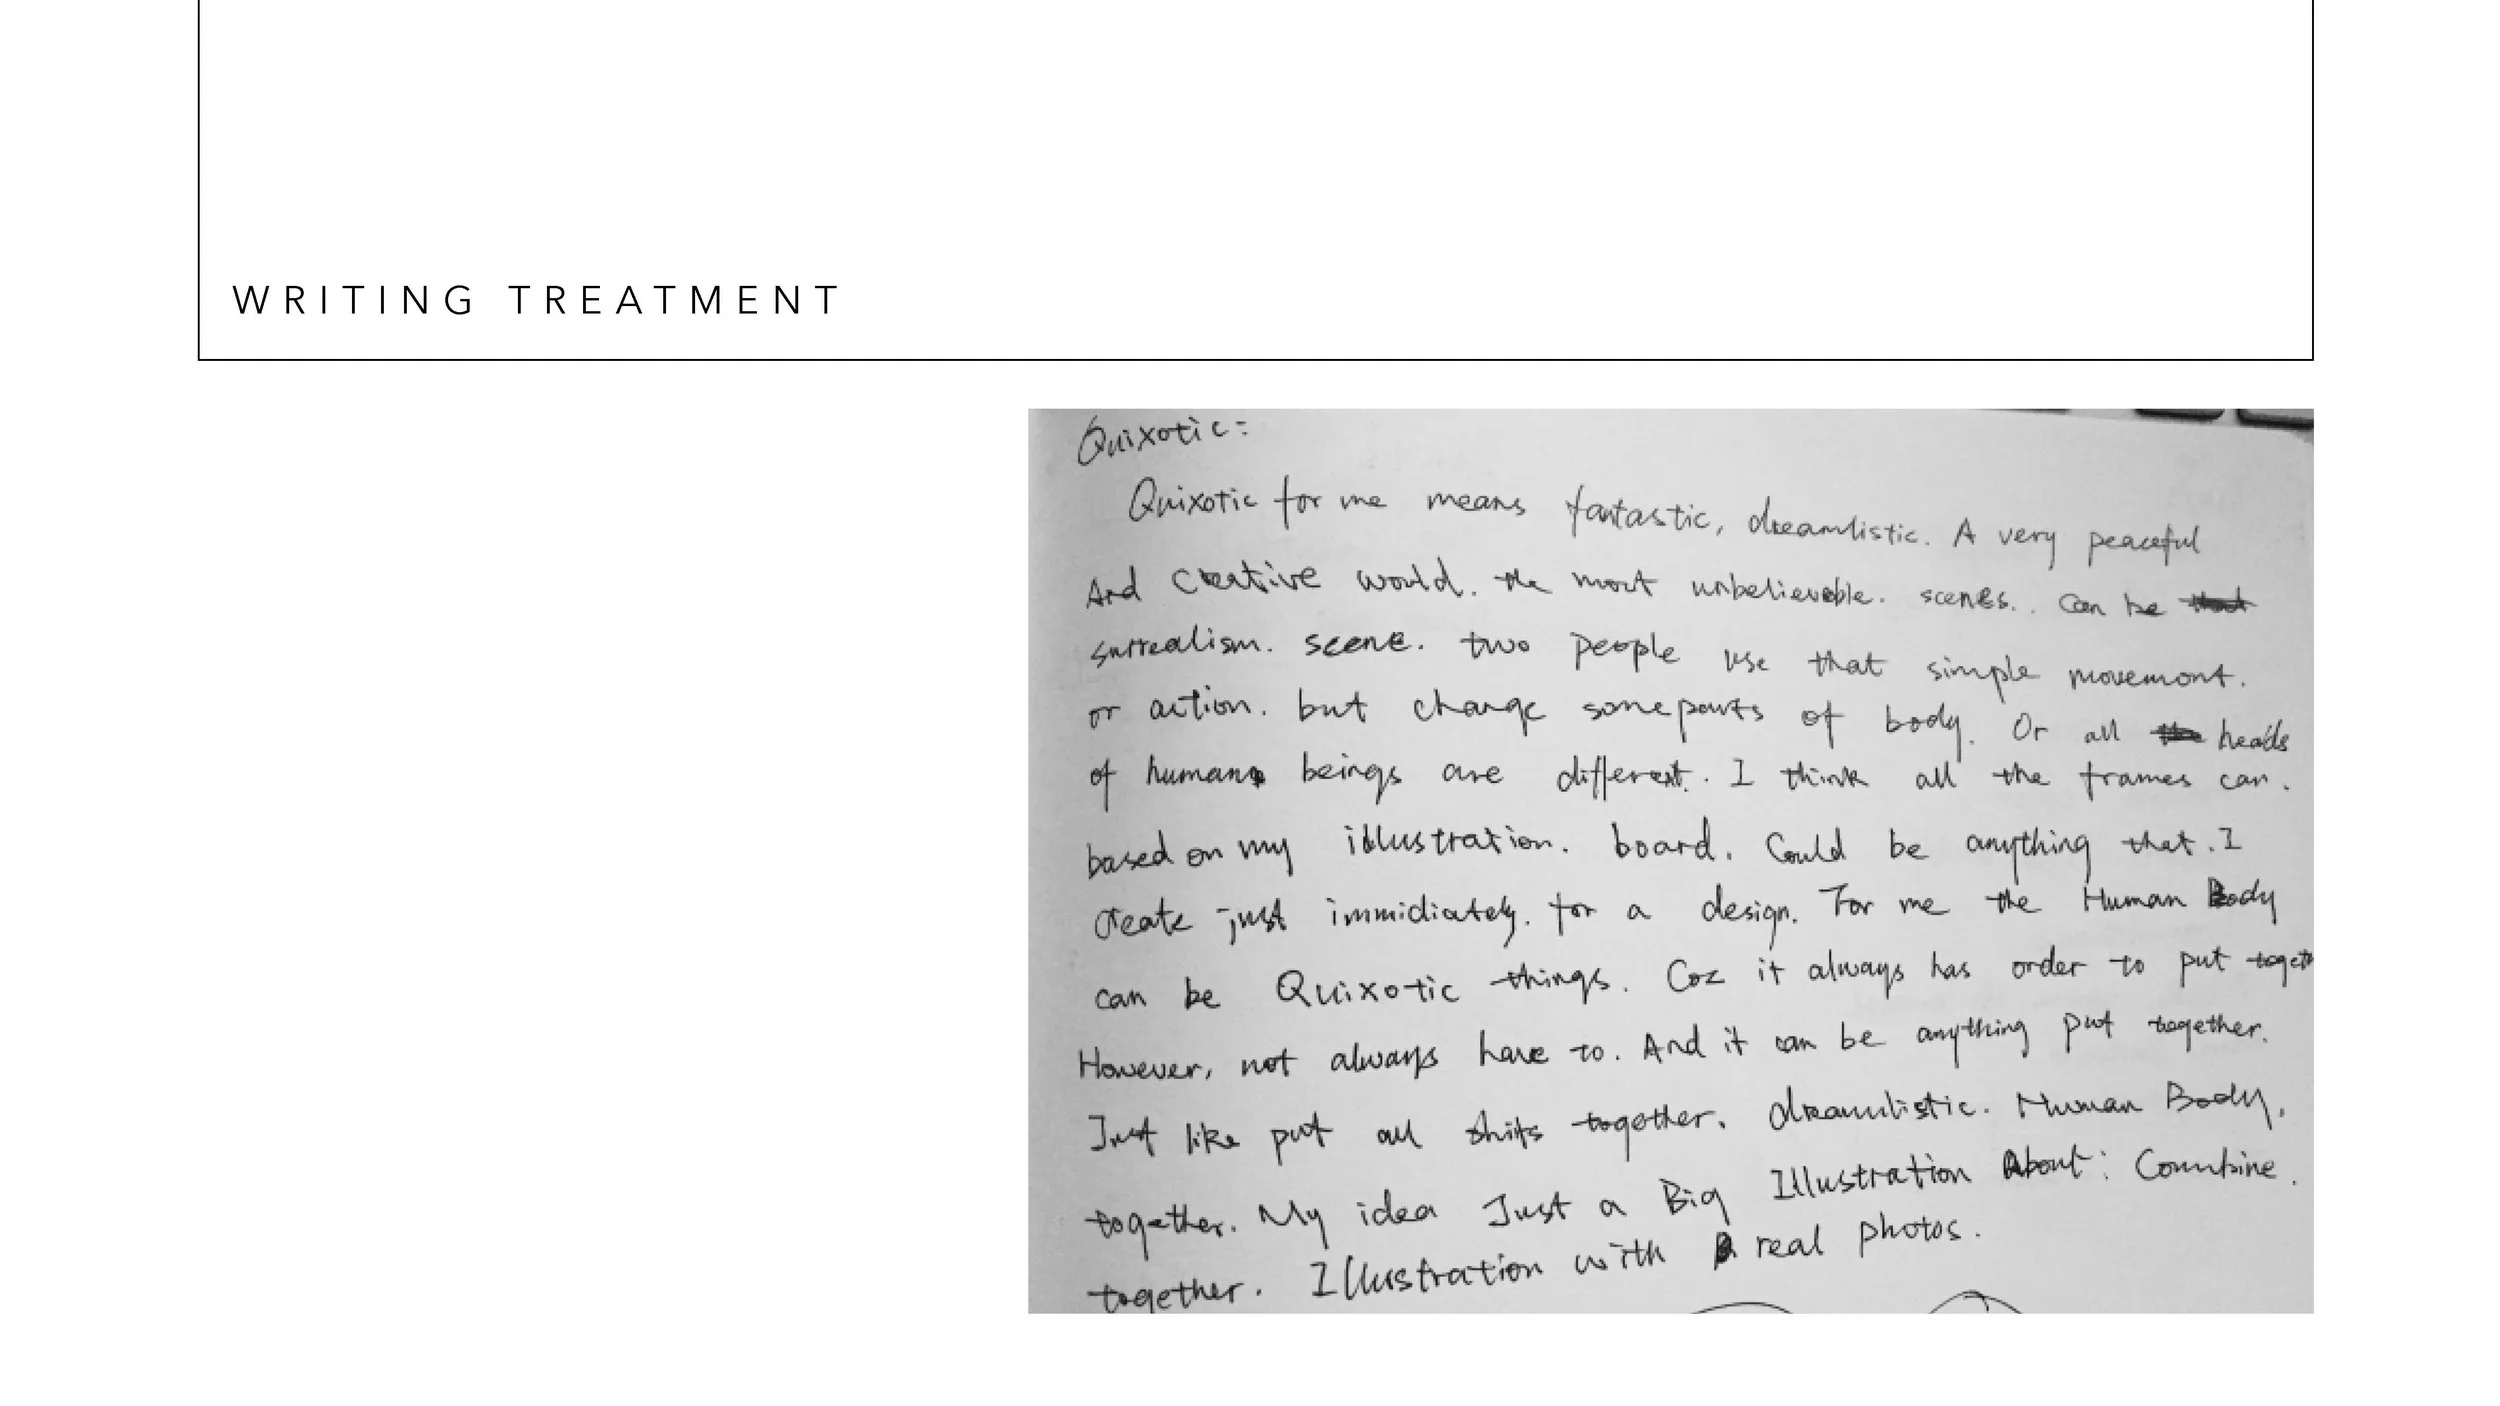 WRITING TREATMENT
Quixotic:
Quixotic for me means fantastic, dreamlistic. A very peaceful
And creative would. the most unbelievable. scenes.. Can be
surrealism. scene. two people use that simple movemont.
or action. but change some parts of body. Or all heads
of human beings are different. I think all the frames can.
based on my illustration. board. Could be anything that. I
create just immidiately. for a design. For me the Human Body
can be Quixotic things. Coz it always has order to put togeth
However, not always have to. And it can be anything put together.
Just like put all shits together. dreamlistic. Human Body.
together. My idea Just a Big Illustration About: Combine.
together. Illustration with real photos.